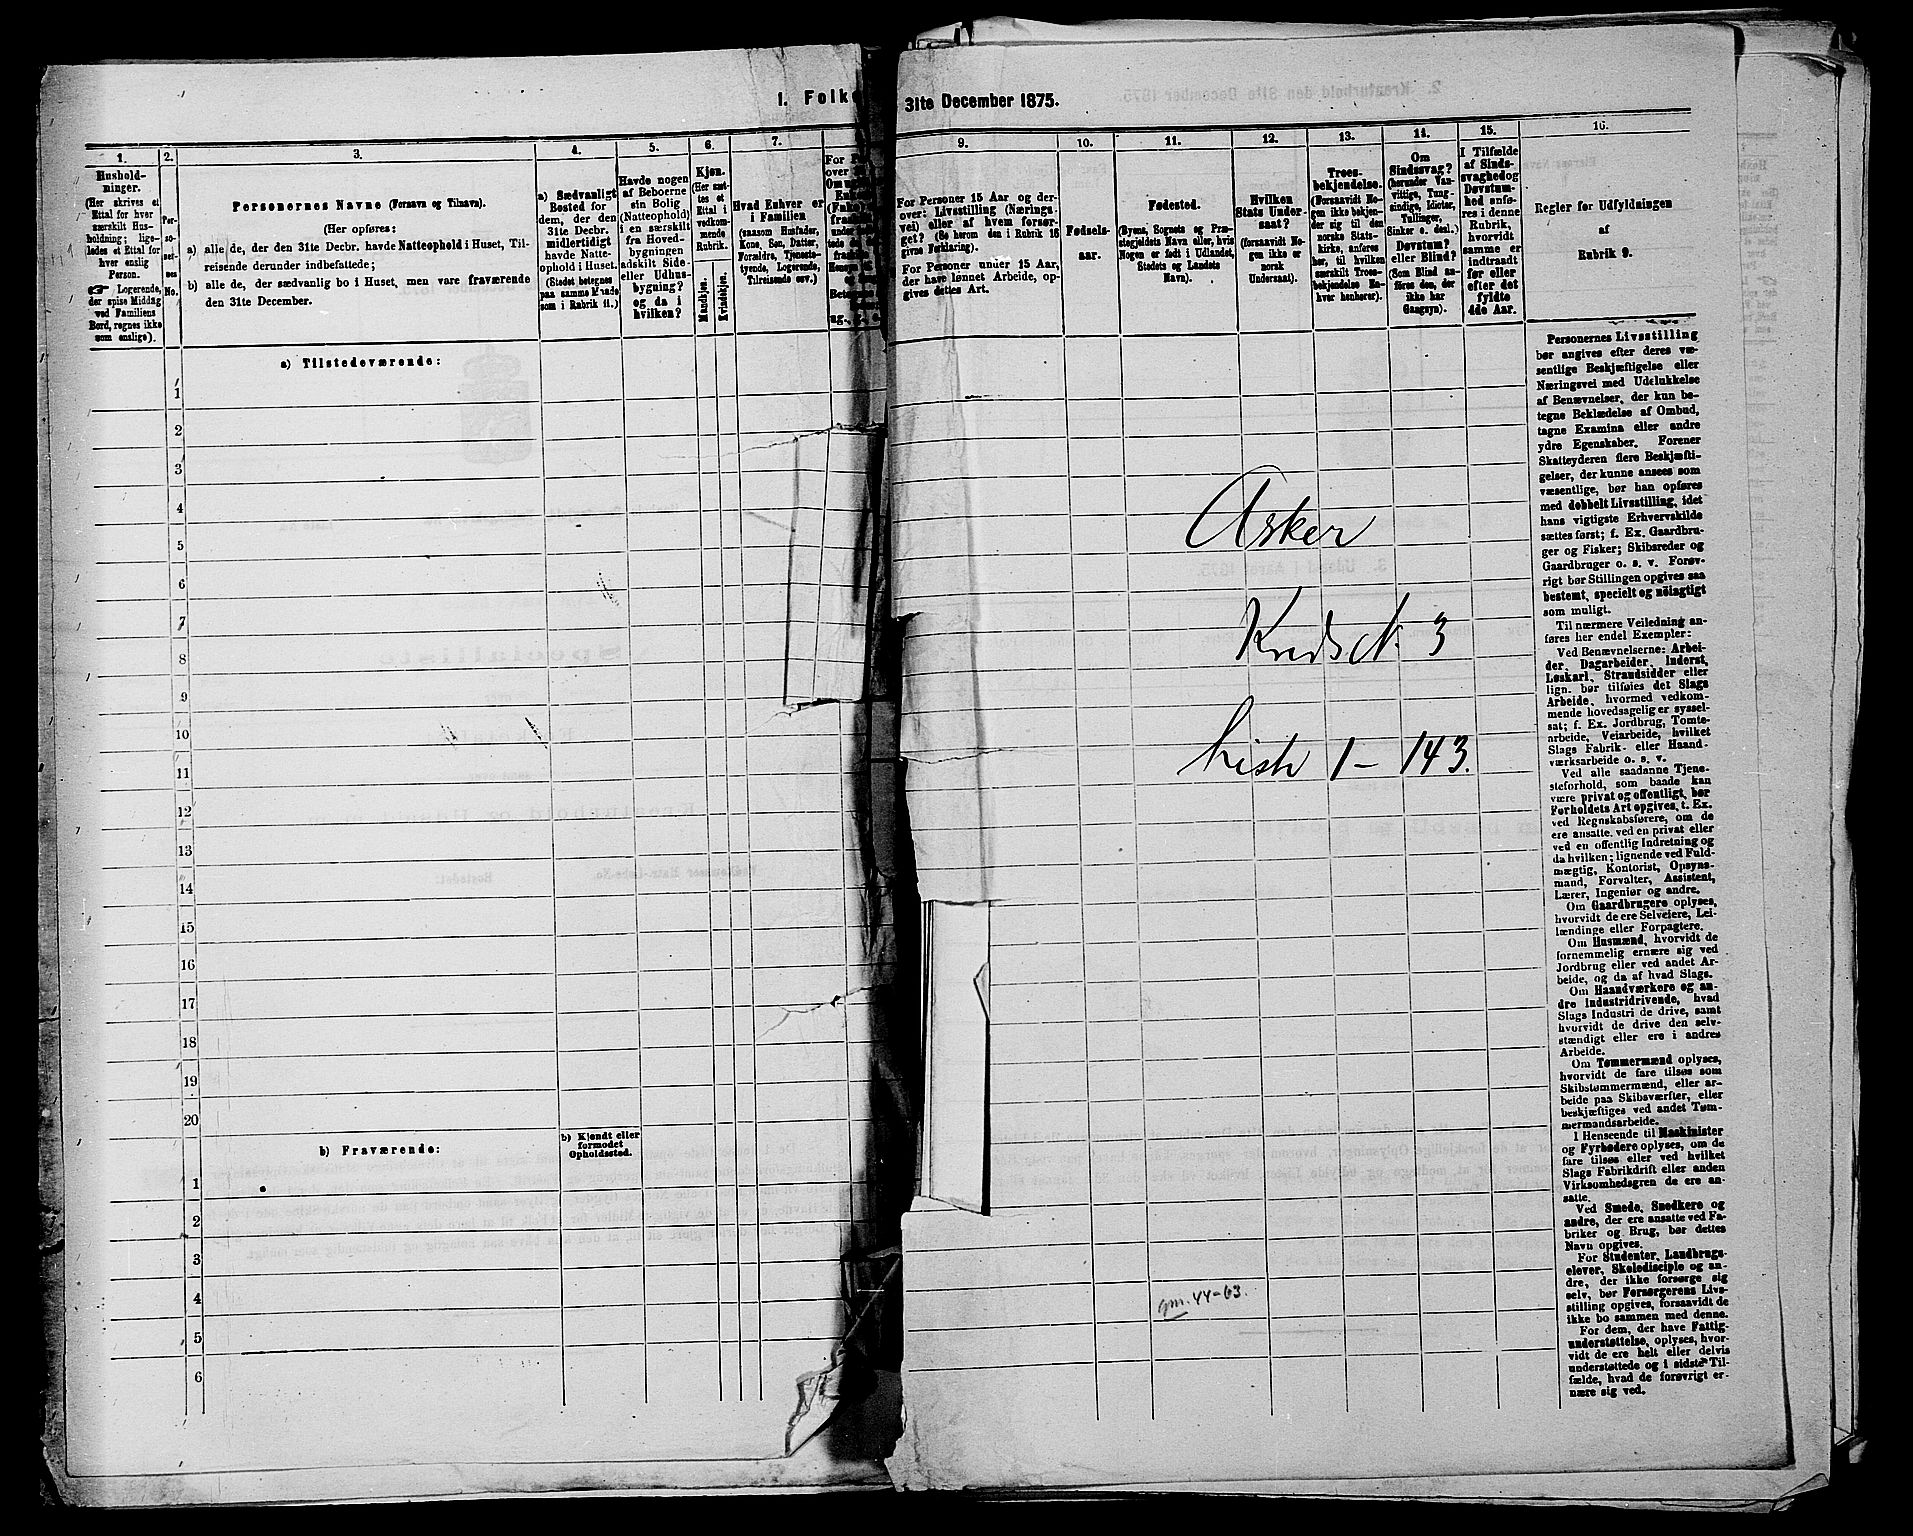 1. Folke
31te December 1875.
1.
Hushold-
ninger.
(Her skrives et
Ettal for hver
særskilt Hus-
holdning; lige-
ledes et Ettal for
hver enslig
Person.
Logerende,
der spise Middag
ved Familiens
Bord, regnes ikke
som enslige).
2.
Per-
so-
ner-
nes
No.
3.
Personernes Navne (Fornavn og Tilnavn).
(Her opføres:
a) alle de, der den 31te Decbr. havde Natteophold i Huset, Til-
reisende derunder indbefattede;
b) alle de, der sædvanlig bo i Huset, men vare fraværende
den 31te December.
4.
a) Sædvanligt
Bosted for
dem, der den
31te Decbr.
midlertidigt
havde Natte-
ophold i Huset.
(Stedet betegnes
paa samme Maade
som i Rubrik 11.)
5.
Havde nogen
af Beboerne
sin Bolig
(Natteophold)
i en særskilt
fra Hoved-
bygningen
adskilt Side-
eller Udhus-
bygning?
og da i
hvilken?
6.
Kjøn.
(Her sæt-
tes et
Ettal i
vedkom-
mende
Rubrik.
Mandkjøn.
Kvindekjøn.
7.
Hvad Enhver er
i Familien
(saasom Husfader,
Kone, Søn, Datter,
Forældre, Tjeneste-
tyende, Logerende,
Tilreisende osv.)
9.
For Personer 15 Aar og der-
over: Livsstilling (Nærings-
vei) eller af hvem forsør-
get? (Se herom den i Rubrik 16
givne Forklaring).
For Personer under 15 Aar,
der have lønnet Arbeide, op-
gives dettes Art.
10.
Fødsels-
aar.
11.
Fødested.
(Byens, Sognets og Præ-
stegjeldets Navn eller, hvis
Nogen er født i Udlandet,
Stedets og Landets
Navn).
12.
Hvilken
Stats Under-
saat?
(forsaavidt No-
gen ikke er
norsk
Undersaat).
13.
Troes-
bekjendelse.
(Forsaavidt No-
gen ikke bekjen-
der sig til den
norske Stats-
kirke, anføres
her, til hvilken
særskilt Troes-
bekjendelse En-
hver henhører).
14.
Om
Sindssvag?
(herunder Van-
vittige, Tung-
sindige, Idioter,
Tullinger,
Sinker o. desl.)
Døvstum?
eller Blind?
(Som Blind an-
føres den, der
ikke har
Gangsyn).
15.
I Tilfælde
af Sinds-
svaghed og
Døvstum-
hed anfø-
res i denne
Rubrik,
hvorvidt
samme er
indtraadt
før eller
efter det
fyldte
4de Aar.
16.
Regler for Udfyldningen
af
Rubrik 9.
a) Tilstedeværende:
1
2
3
4
5
6
7
8
9
10
11
12
13
14
15
16
17
18
19
20
b) Fraværende:
b) Kjendt eller
formodet
Opholdssted.
1
2
3
4
5
6
Asker
Kreds N. 3
Liste 1 – 143.
gm. 44-63.
Personernes Livsstilling
bør angives efter deres væ-
sentlige Beskjæftigelse eller
Næringsvei med Udelukkelse
af Benævnelser, der kun be-
tegne Beklædelse af Ombud,
tagne Examina eller andre
ydre Egenskaber. Forener
Skatteyderen flere Beskjæfti-
gelser, der kunne ansees som
væsentlige, bør han opføres
med dobbelt Livsstilling, idet
hans vigtigste Erhvervskilde
sættes først; f. Ex. Gaardbru-
ger og Fisker; Skibsreder og
Gaardbruger o. s. v. Forøv-
rigt bør Stillingen opgives saa
bestemt, specielt og nøiagtigt
som muligt.
Til nærmere Veiledning an-
føres her endel Exempler:
Ved Benævnelserne: Arbei-
der, Dagarbeider, Inderst,
Løskarl, Strandsidder eller
lign. bør tilføies det Slags
Arbeide, hvormed vedkom-
mende hovedsagelig er syssel-
sat; f. Ex. Jordbrug, Tomte-
arbeide, Veiarbeide, hvilket
Slags Fabrik- eller Haand-
værksarbeide o. s. v.
Ved alle saadanne Tjene-
steforhold, som baade kan
være privat og offentligt, bør
Forholdets Art opgives, t. Ex.
ved Regnskabsførere, om de
ere ansatte ved en privat eller
ved en offentlig Indretning og
da hvilken; lignende ved Fuld-
mægtig, Kontorist, Opsyns-
mand, Forvalter, Assistent,
Lærer, Ingeniør og andre.
Om Gaardbrugere oplyses,
hvorvidt de ere Selveiere, Lei-
lændinge eller Forpagtere.
Om Husmænd, hvorvidt de
fornemmelig ernære sig ved
Jordbrug eller ved andet Ar-
beide, og da af hvad Slags.
Om Haandværkere og an-
dre Industridrivende, hvad
Slags Industri de drive, samt
hvorvidt de drive den selv-
stændigt eller ere i andres
Arbeide.
Om Tømmermænd oplyses,
hvorvidt de fare tilsøs som
Skibstømmermænd, eller ar-
beide paa Skibsværfter, eller
beskjæftiges ved andet Tøm-
mermandsarbeide.
I Henseende til Maskinister
og Fyrbødere oplyses, om de
fare tilsøs eller ved hvilket
Slags Fabrikdrift eller anden
Virksomhedsgren de ere an-
satte.
Ved Smede, Snedkere og
andre, der ere ansatte ved Fa-
briker og Brug, bør dettes
Navn opgives.
For Studenter, Landbrugs-
elever, Skoledisciple og an-
dre, der ikke forsørge sig
selv, bør Forsørgerens Livs-
stilling opgives, forsaavidt de
ikke bo sammen med denne.
For dem, der have Fattig-
understøttelse, oplyses, hvor-
vidt de ere helt eller delvis
understøttede og i sidste Til-
fælde, hvad de forøvrigt er-
nære sig ved.